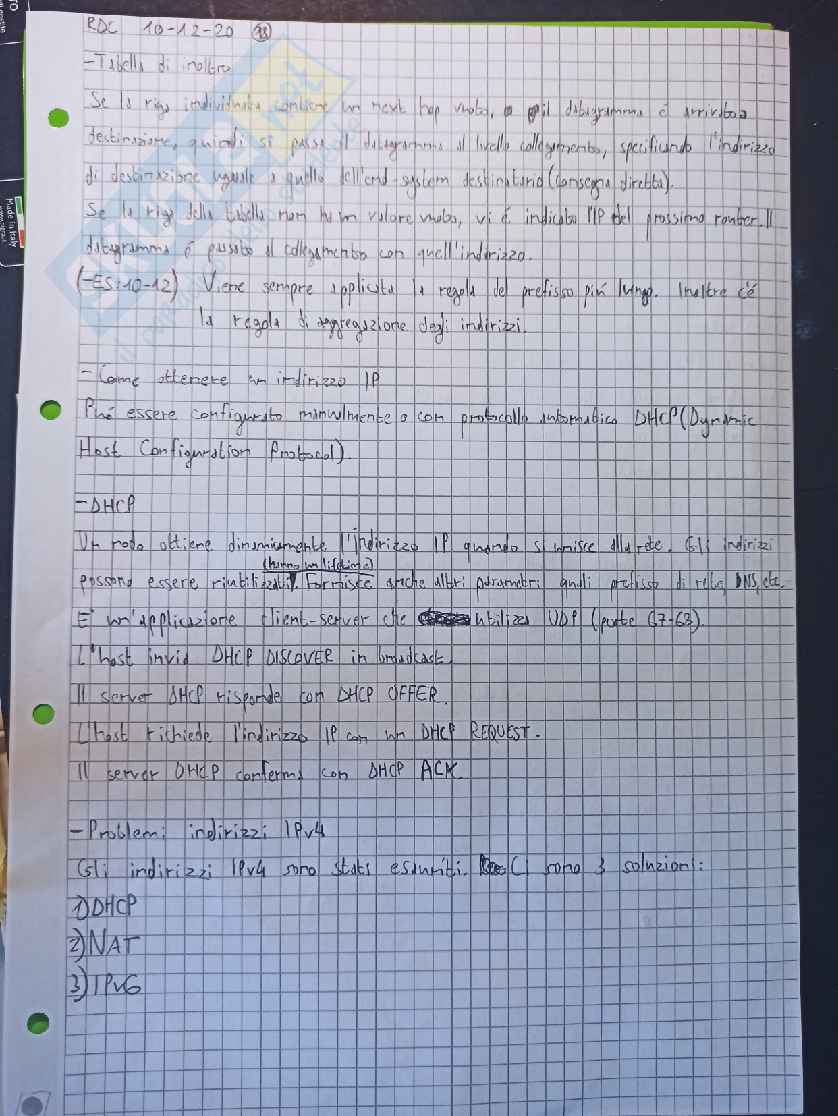 RDC 10-12-20 98
-Tabella di inoltro
Se la riga individuata contiene un next hop vuoto, il datagramma è arrivato a
destinazione, quindi si passa il datagramma al livello collegamento, specificando l'indirizzo
di destinazione uguale a quello dell'end-system destinatario (consegna diretta).
Se la riga della tabella non ha un valore vuoto, vi è indicato l'IP del prossimo router. Il
datagramma è passato al collegamento con quell'indirizzo.
(-ES:10-12) Viene sempre applicata la regola del prefisso più lungo. Inoltre c'è
la regola di aggregazione degli indirizzi.
-Come ottenere un indirizzo IP
Può essere configurato manualmente o con protocollo automatico DHCP (Dynamic
Host Configuration Protocol).
-DHCP
Un nodo ottiene dinamicamente l'indirizzo IP quando si unisce alla rete. Gli indirizzi
(hanno un lifetime)
possono essere riutilizzati. Fornisce anche altri parametri quali prefisso di rete, DNS, etc.
E' un'applicazione client-server che utilizza UDP (porte 67-68).
L'host invia DHCP DISCOVER in broadcast.
Il server DHCP risponde con DHCP OFFER.
L'host richiede l'indirizzo IP con un DHCP REQUEST.
Il server DHCP conferma con DHCP ACK.
-Problemi indirizzi IPv4
Gli indirizzi IPv4 sono stati esauriti. Ci sono 3 soluzioni:
1)DHCP
2)NAT
3)IPv6
Made in Italy